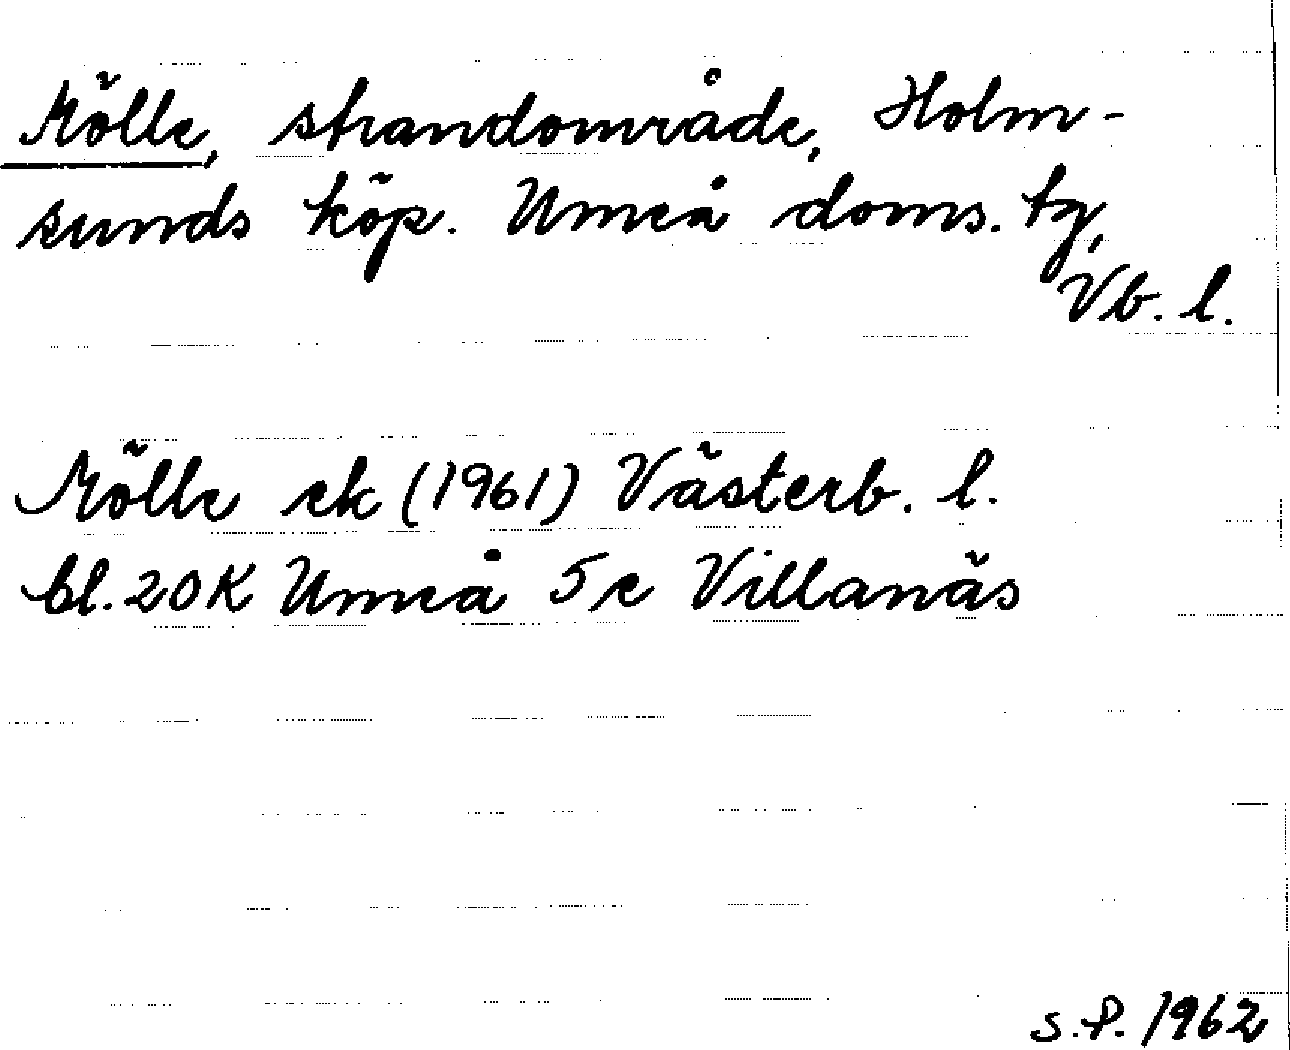 Mölle, strandområde, Holm-
sunds köp. Umeå doms. tg,
Vb. l.
Mölle ek (1961) Västerb. l.
bl. 20K Umeå 5e Villanäs
S.P. 1962